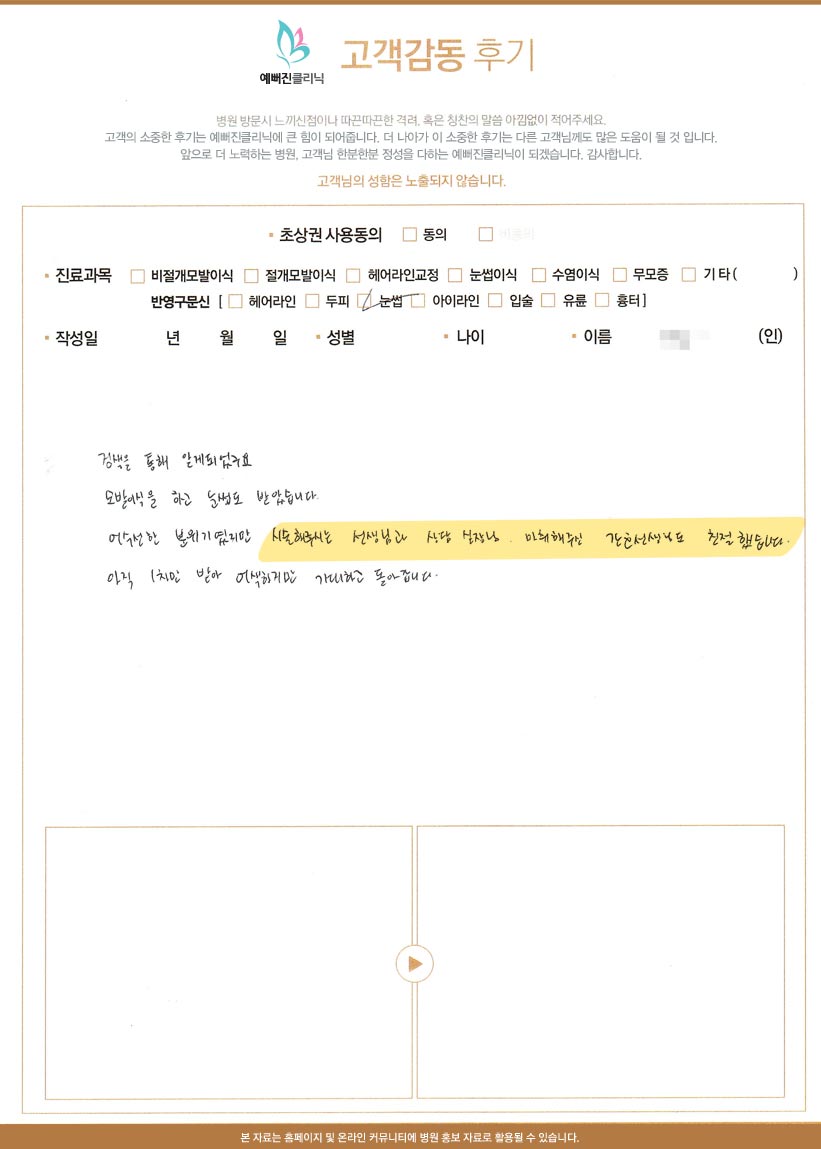 예뻐진클리닉
고객감동 후기
병원 방문시 느끼신점이나 따끈따끈한 격려, 혹은 칭찬의 말씀 아낌없이 적어주세요.
고객의 소중한 후기는 예뻐진클리닉에 큰 힘이 되어줍니다. 더 나아가 이 소중한 후기는 다른 고객님께도 많은 도움이 될 것 입니다.
앞으로 더 노력하는 병원, 고객님 한분한분 정성을 다하는 예뻐진클리닉이 되겠습니다. 감사합니다.
고객님의 성함은 노출되지 않습니다.
초상권 사용동의 동의 비동의
진료과목 비절개모발이식 절개모발이식 헤어라인교정 눈썹이식 수염이식 무모증 기타( )
반영구문신 [ 헤어라인 두피 눈썹 아이라인 입술 유륜 흉터 ]
작성일 년 월 일 성별 나이 이름 (인)
검색을 통해 알게되었구요
모발이식을 하고 눈썹도 받았습니다.
어수선한 분위기였지만 시술해주시는 선생님과 상담 실장님. 마취해주신 간호선생님도 친절했습니다.
아직 1차만 받아 어색하지만 기대하고 돌아갑니다.
본 자료는 홈페이지 및 온라인 커뮤니티에 병원 홍보 자료로 활용될 수 있습니다.